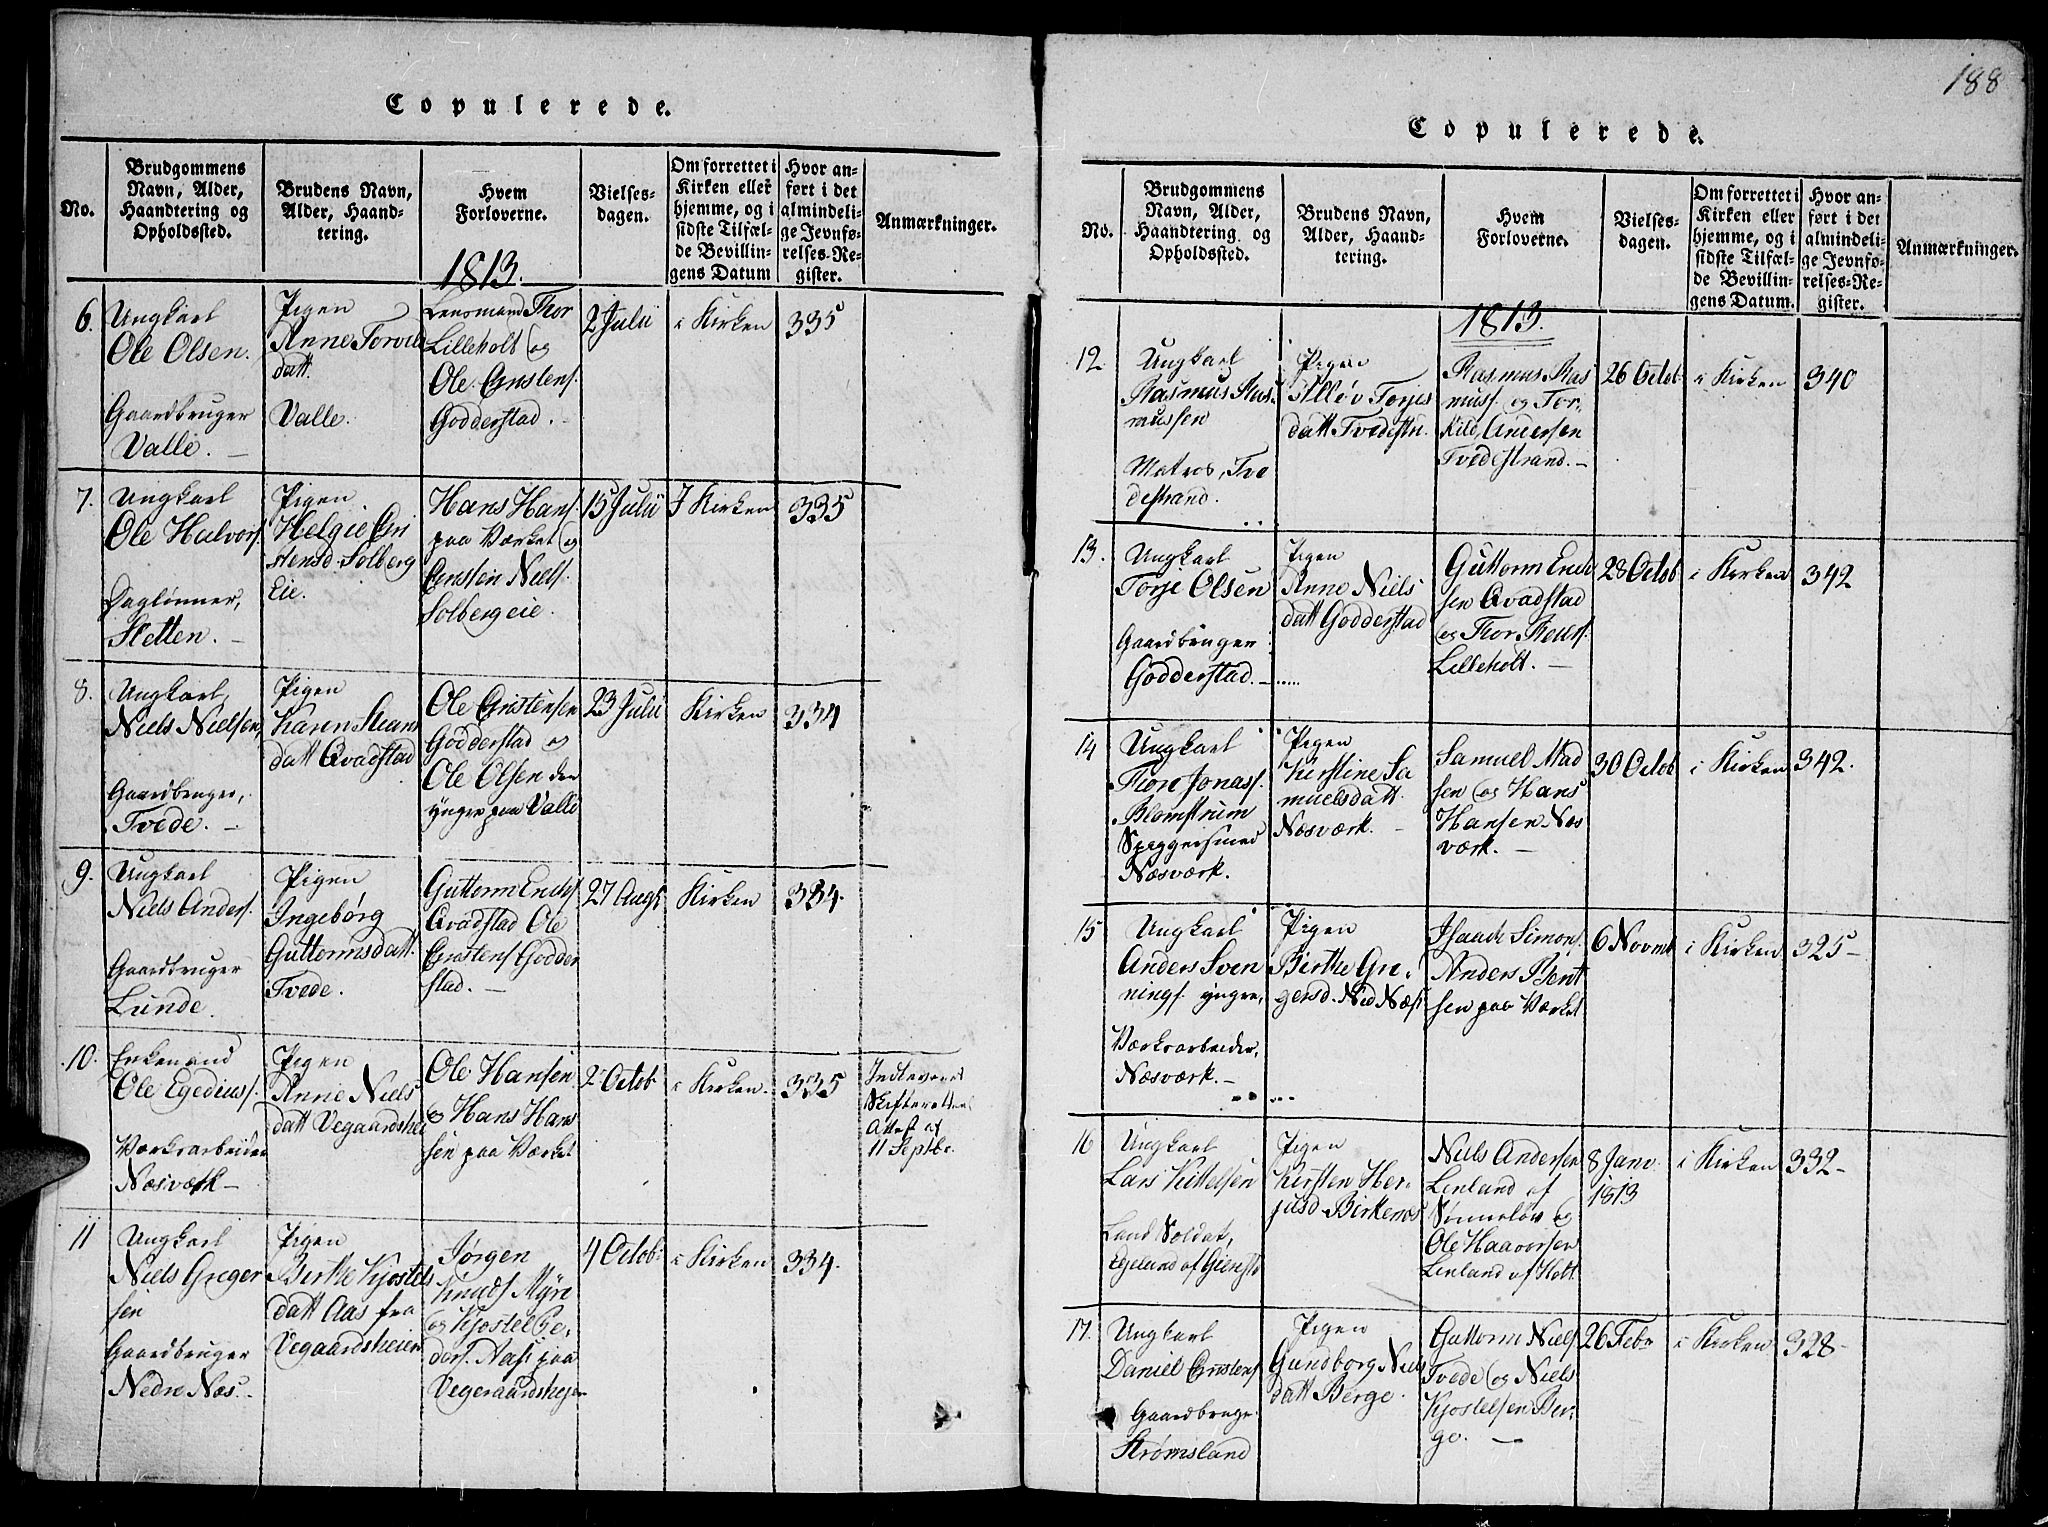 Copulerede.
No.
Brudgommens
Navn, Alder,
Haandtering og
Opholdssted.
Brudens Navn,
Alder, Haand-
tering.
Hvem
Forloverne.
Vielses-
dagen.
Om forrettet i
Kirken eller
hjemme, og i
sidste Tilfæl-
de Bevillin-
gens Datum
Hvor an-
ført i det
almindeli-
ge Jevnfø-
relses-Re-
gister.
Anmærkninger.
1813.
6.
Ungkarl
Ole Olsen.
Gaardbruger
Valle.
Pigen
Anne
datt.
Valle.
Lensmand Thor
Lilleholt og
Ole
Godderstad.
2 Julii
i Kirken
335
7.
Ungkarl
Ole Halvors.
Daglønner,
Sletten.
Pigen
Helgie
Solberg
Eie.
Hans Hans.
paa Værket og
Niels.
Solbergeie.
15 Julii
I Kirken
335
8.
Ungkarl,
Niels Nielsen,
Gaardbruger,
Tvede.
Pigen
Karen
datt Qvadstad
Ole
Godderstad og
Ole Olsen den
yngre paa Valle
23 Julii
Kirken
334
9.
Ungkarl
Niels Anders.
Gaardbruger
Lunde.
Pigen
Ingebørg
Guttormsdatt.
Tvede.
Guttorm
Qvadstad Ole
Godder
stad.
27 Augt
Kirken
334.
10.
Enkemand
Ole Egedius.
Værksarbeider
Næsværk
Pigen
Anne Niels
datt Vegaardshei
Ole Hansen
og Hans Han
sen paa Værket
2 Octob
i Kirken.
335
Indleveret
Skifteretten
Attest af
11 Septbr.
11
Ungkarl
Niels Greger
sen
Gaardbruger
Nedre Næs.
Pigen
Birthe Kjostels
datt Aas fra
Vegaardsheien
Jørgen
Knuds. Myre
og Kjostel
paa
4 Octob:
i Kirken
334.
188
Copulerede.
No.
Brudgommens
Navn, Alder,
Haandtering og
Opholdssted.
Brudens Navn,
Alder, Haand-
tering.
Hvem
Forloverne.
Vielses-
dagen.
Om forrettet i
Kirken eller
hjemme, og i
sidste Tilfæl-
de Bevillin-
gens Datum.
Hvor an-
ført i det
almindeli-
ge Jevnfø-
relses-Re-
gister.
Anmærkninger.
1813.
12.
Ungkarl
Rasmus Ras-
mussen
Matros, Tve
destrand.
Pigen
Torjes
datt Tvedestr.
Rasmus Ras
muss. og Tor-
kild Andersen
Tvedestrand.
26 Octob
i Kirken
340
13.
Ungkarl
Torje Olsen
Gaardbruger
Godderstad.
Pigen
Anne Niels
datt Godderstad
Guttorm Erich
sen Qvadstad
og Thor
Lilleholt.
28 Octob
i Kirken
342
14
Ungkarl
Thor Jonass.
Blomstrum
Næsværk.
Pigen
Kirstine Sa
muelsdatt.
Næsværk.
Samuel Mad
sen og Hans
Hansen Næs
værk.
30 Octob
i Kirken
342.
15
Ungkarl
Anders Sven
nings. yngre,
Værksarbeider,
Næsværk.
Pigen
Birthe Gre-
gersd. Ned Næs.
Isaach Simons.
Anders Bent
sen paa Værket
6 Novmb
i Kirken
325
16
Ungkarl
Lars Kittelsen
Land Soldat,
Egelund af
Pigen
Kirsten Her-
jusd. Birkenes
Niels Andersen
Lenland af
og
Ole Haavorsen
Lenland af Holt.
8 Janv.
1813
i Kirken
332
17.
Ungkarl
Daniel
Gaardbruge
Strømsland
Pigen
Gundborg Niels
datt Berge.
Guttorm Niels.
Tvede og Niels
Kjostelsen Ber-
ge.
26 Febr
i Kirken
328